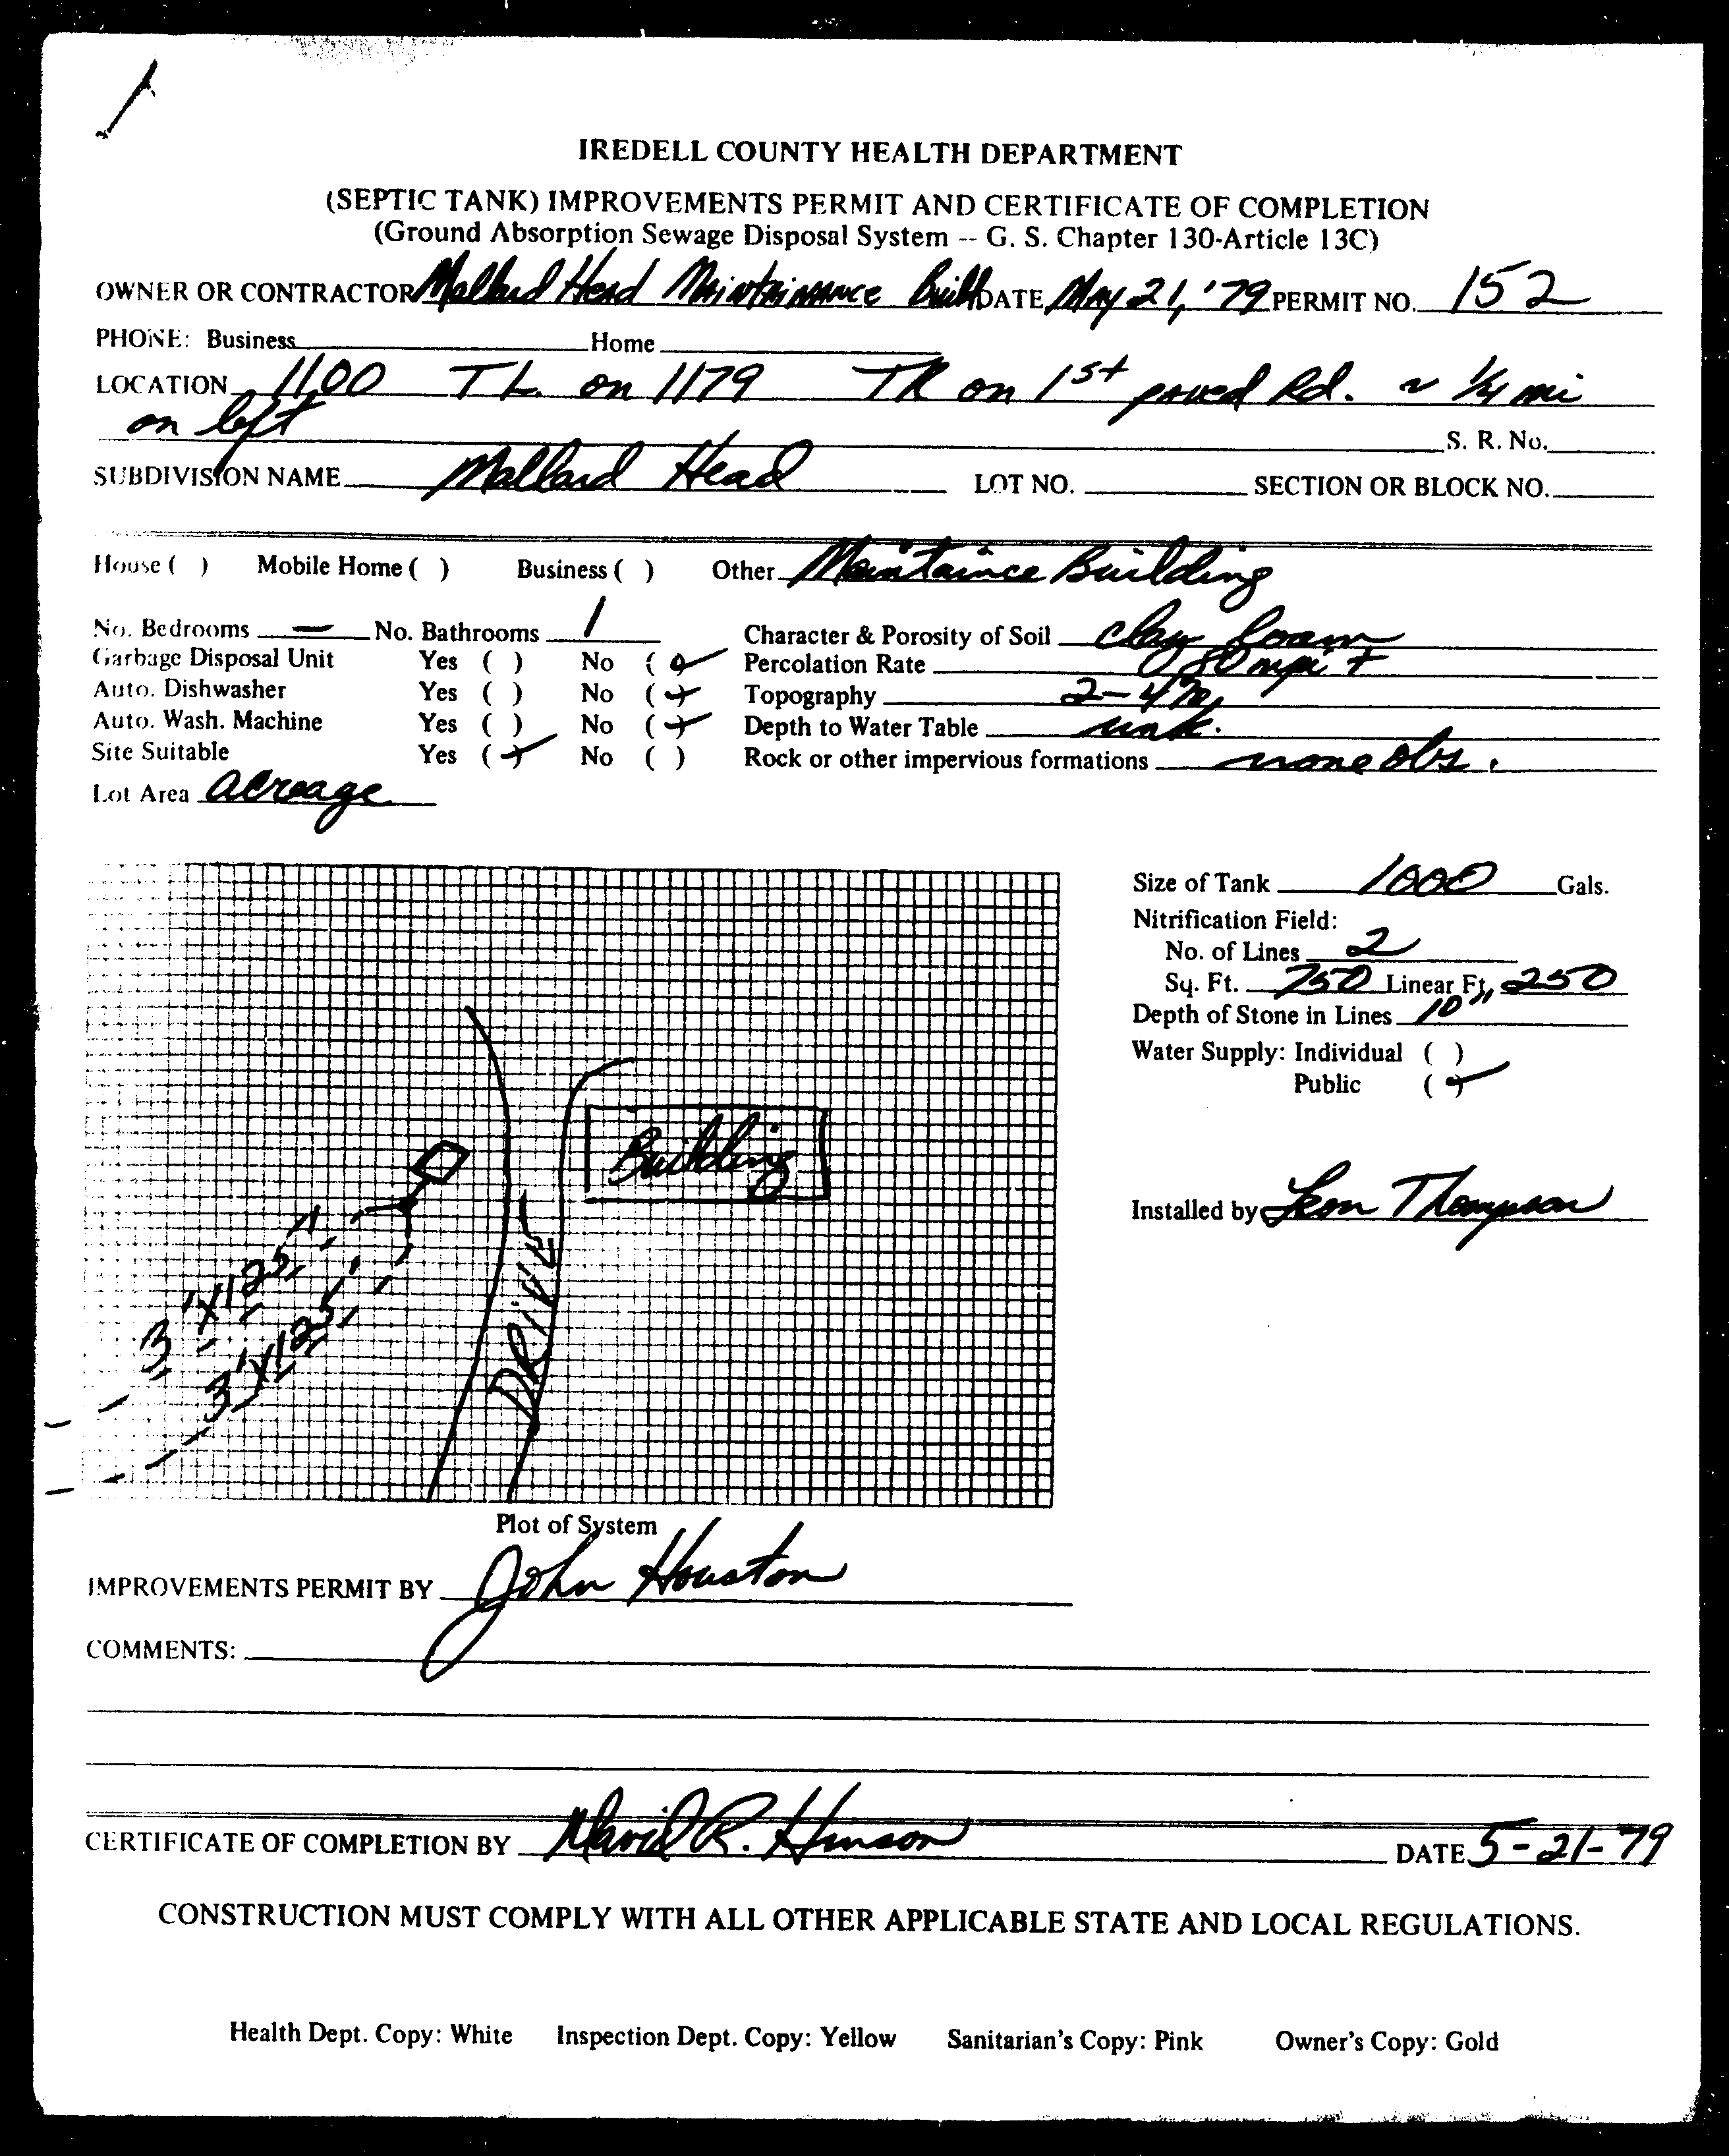 IREDELL COUNTY HEALTH DEPARTMENT
(SEPTIC TANK) IMPROVEMENTS PERMIT AND CERTIFICATE OF COMPLETION
(Ground Absorption Sewage Disposal System -- G. S. Chapter 130-Article 13C)
OWNER OR CONTRACTOR Mallard Head Maintainance Build DATE May 21, '79 PERMIT NO. 152
PHONE: Business Home
LOCATION 1100 TL on 1179 TR on 1st paved Rd. ~ 1/4 mi
on left
S. R. No.
SUBDIVISION NAME Mallard Head LOT NO. SECTION OR BLOCK NO.
House ( ) Mobile Home ( ) Business ( ) Other Maintaince Building
No. Bedrooms — No. Bathrooms 1 Character & Porosity of Soil clay loam
Garbage Disposal Unit Yes ( ) No (✓) Percolation Rate 80 mpi +
Auto. Dishwasher Yes ( ) No (✓) Topography 2-4%
Auto. Wash. Machine Yes ( ) No (✓) Depth to Water Table unk.
Site Suitable Yes (✓) No ( ) Rock or other impervious formations none obs.
Lot Area acreage
Size of Tank 1000 Gals.
Nitrification Field:
No. of Lines 2
Sq. Ft. 750 Linear Ft. 250
Depth of Stone in Lines 10"
Water Supply: Individual ( )
Public (✓)
Building
Installed by Leon Thompson
DRIVE
3'X125'
3'X125'
Plot of System
IMPROVEMENTS PERMIT BY John Houston
COMMENTS:
CERTIFICATE OF COMPLETION BY David R. Hinson DATE 5-21-79
CONSTRUCTION MUST COMPLY WITH ALL OTHER APPLICABLE STATE AND LOCAL REGULATIONS.
Health Dept. Copy: White Inspection Dept. Copy: Yellow Sanitarian's Copy: Pink Owner's Copy: Gold